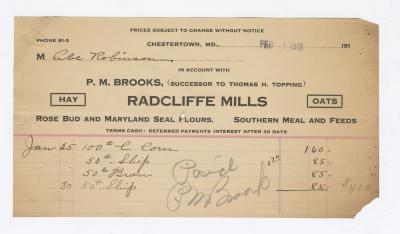 PRICES SUBJECT TO CHANGE WITHOUT NOTICE
PHONE 81-2
CHESTERTOWN, MD., FEB 1 191
M Abe Robinson,
IN ACCOUNT WITH
P. M. BROOKS, (SUCCESSOR TO THOMAS H. TOPPING)
HAY RADCLIFFE MILLS OATS
ROSE BUD AND MARYLAND SEAL FLOURS. SOUTHERN MEAL AND FEEDS
TERMS CASH: DEFERRED PAYMENTS INTEREST AFTER 30 DAYS
Jan 25 100# C Corn 160
50# Ship 85
50# Bran 85
30 50# Ship 85 $415
Paid
P M Brooks